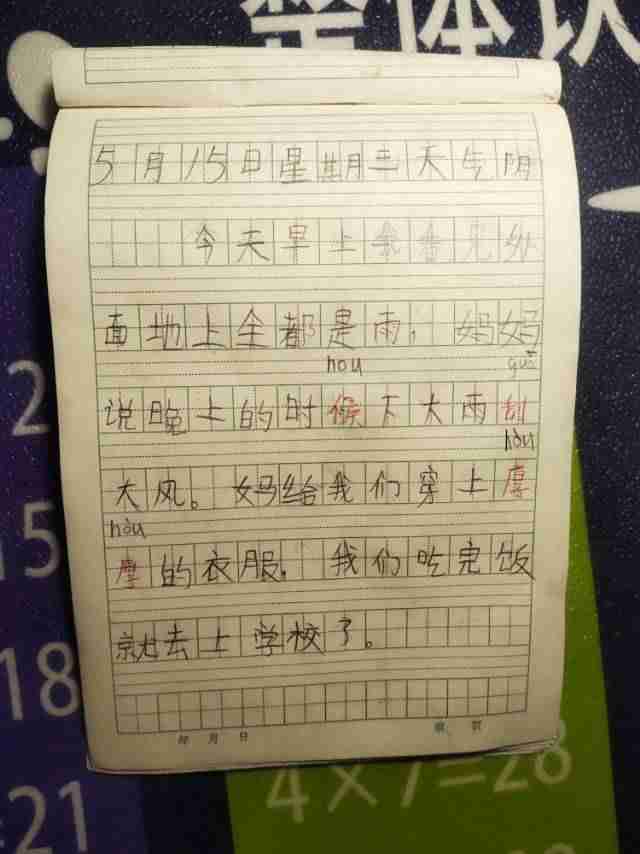 整体认
5月15日星期三天气阴
今天早上我看见外
面地上全都是雨，妈妈
hou guā
说晚上的时候下大雨刮
hòu
大风。妈给我们穿上厚
hòu
厚的衣服。我们吃完饭
就去上学校了。
年 月 日
2
15
18
21
4×7=28